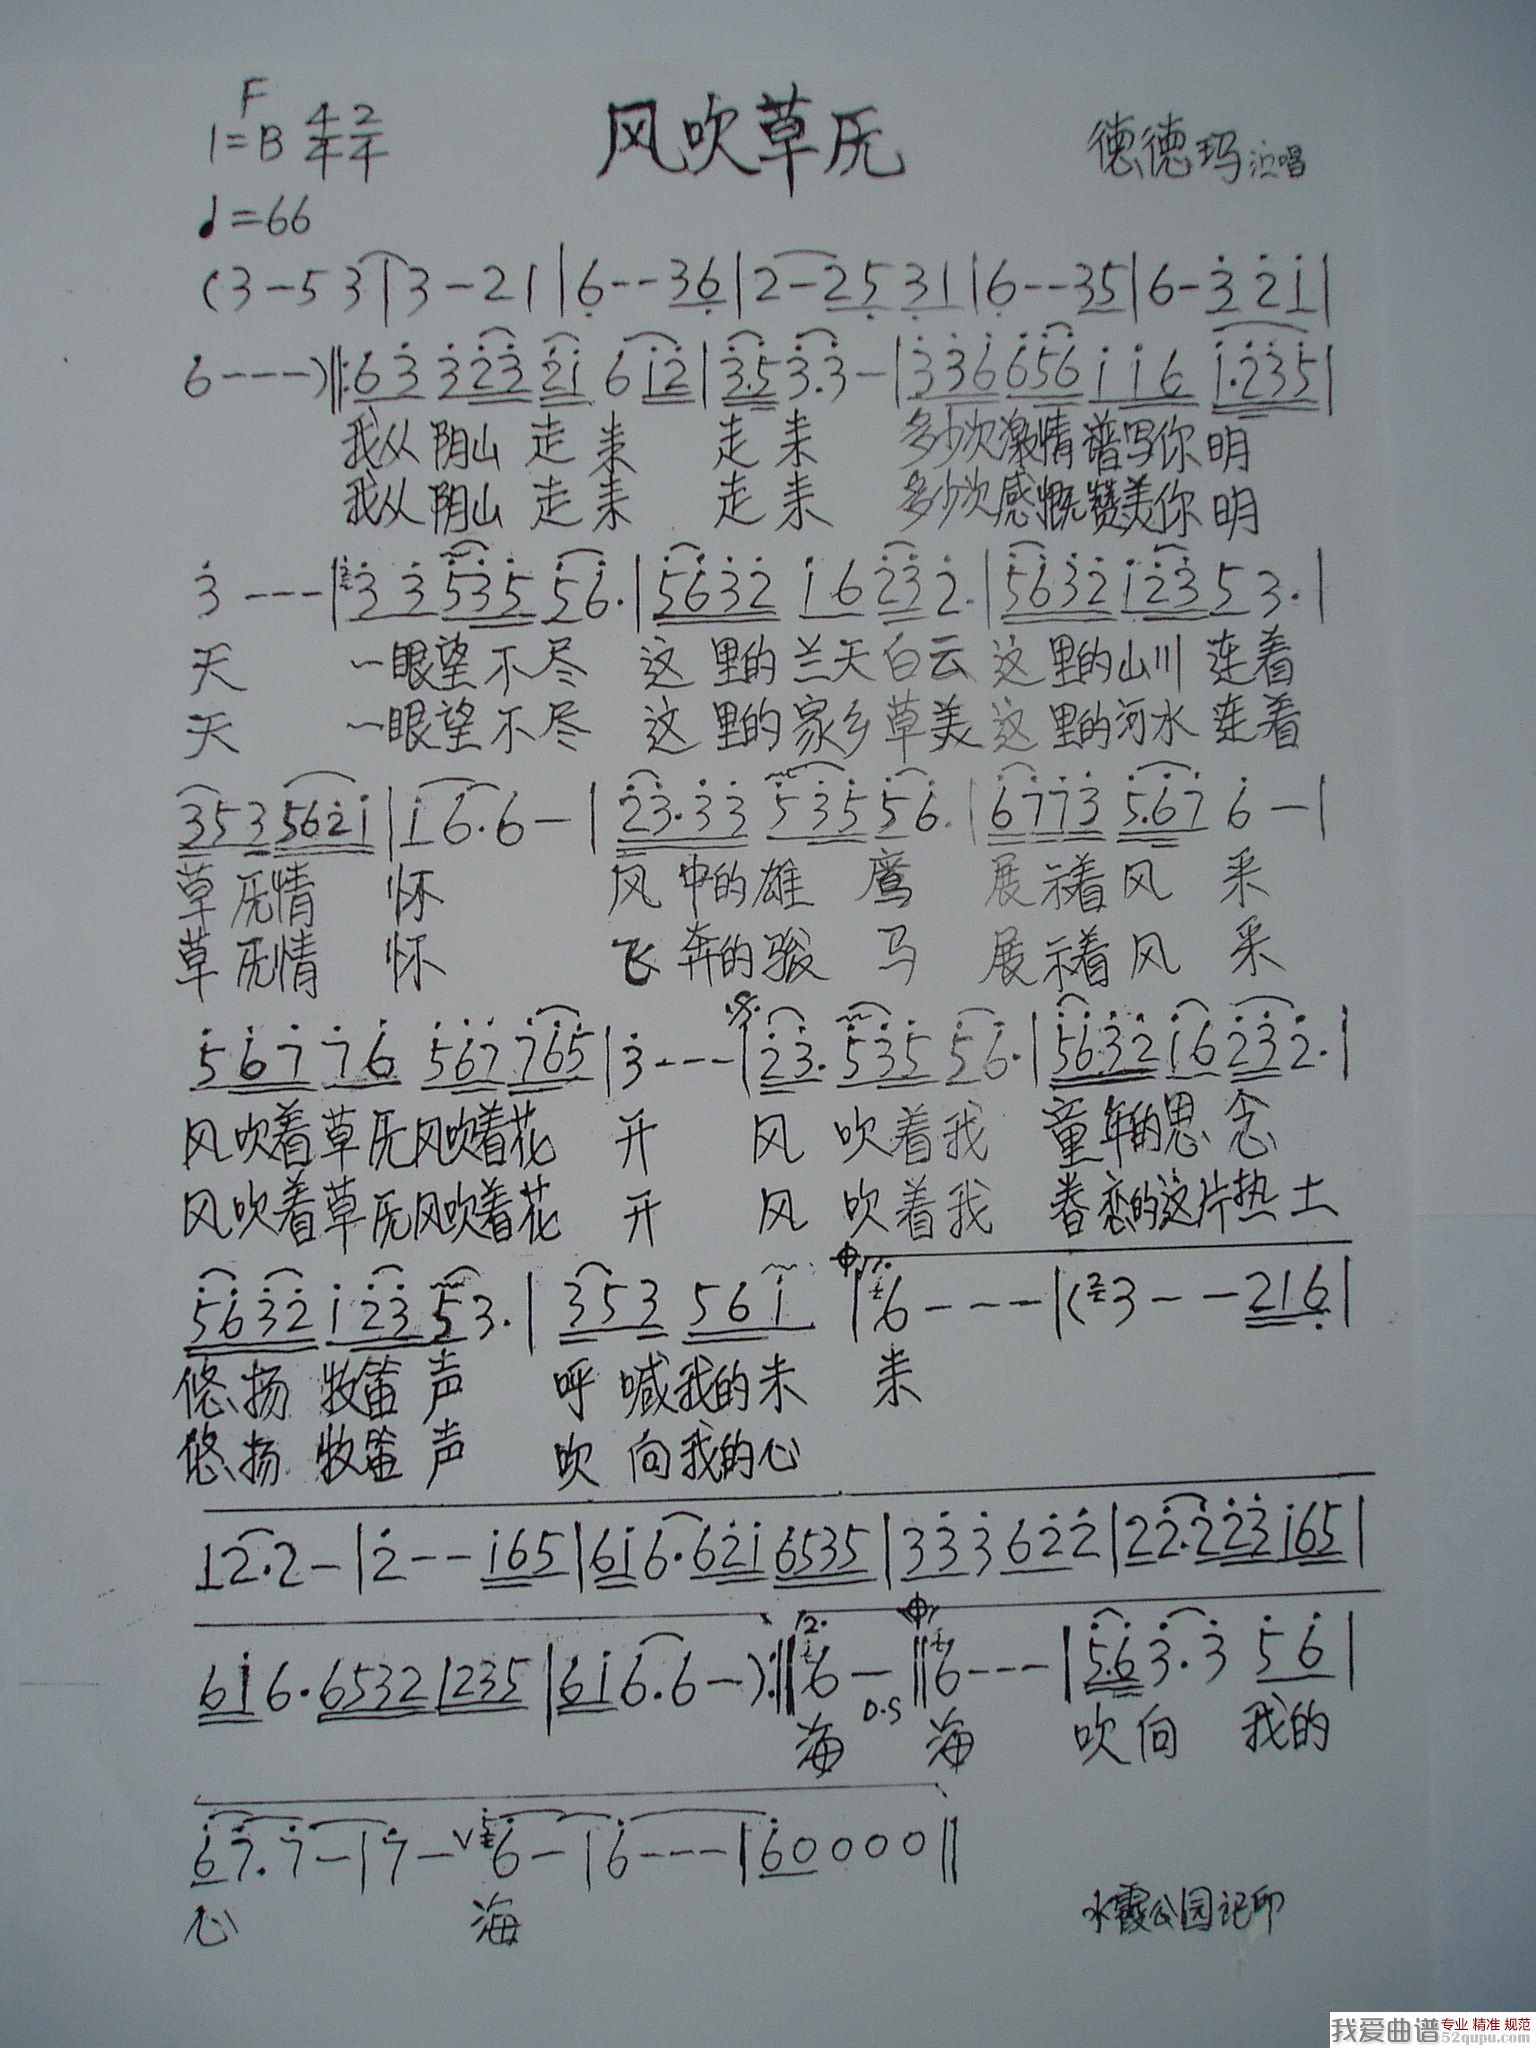 F
1=B 4/4 2/4
风吹草厡
德德玛演唱
♩=66
(3-5 3|3-21|6--36|2-25 31|6--35|6-3 2 1|
6---)‖:63 323 21 612|3.53.3-|336 656 1 16 1.235|
我从阴山 走来 走来 多少次激情谱写你明
我从阴山 走来 走来 多少次感慨赞美你明
3---|3 3 535 56.|5632 16 232.|5632 123 5 3.|
天 一眼望不尽 这里的兰天白云 这里的山川 连着
天 一眼望不尽 这里的家乡草美 这里的河水 连着
353 5621|1 6.6-|23.33 535 56.|6773 5.67 6-|
草厡情 怀 风中的雄鹰 展示着风采
草厡情 怀 飞奔的骏马 展示着风采
567 76 567 765|3---|23. 535 56.|5632 16 232.|
风吹着草厡风吹着花 开 风吹着我 童年的思念
风吹着草厡风吹着花 开 风吹着我 眷恋的这片热土
5632 123 53.|353 561|1. 6---|(3--216|
悠扬牧笛声 呼喊我的未来
悠扬牧笛声 吹向我的心
12.2-|2--165|616.621 6535|333 622|22.223165|
616.6532 1235|616.6-):‖2. 6-‖6---|5.63.3 56|
D.S
海 海 吹向 我的
67.7-|7-V6-|6---|60000‖
心 海
水霞公园记印
我爱曲谱 专业 精准 规范
52qupu.com